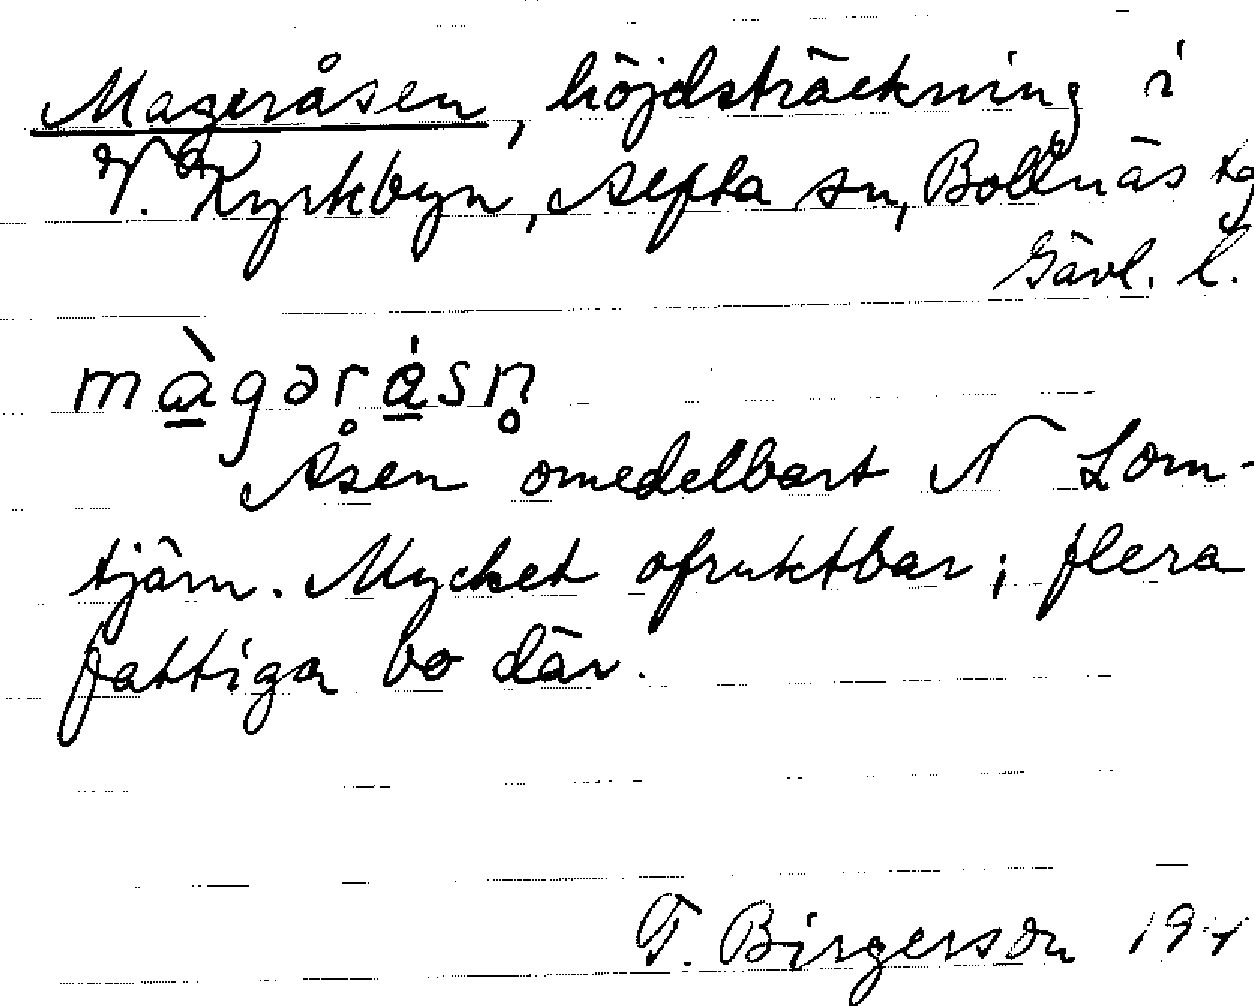 Mageråsen, höjdsträckning i
V. Kyrkbyn, Alfta sn, Bollnäs tg
Gävl. l.
màgəråsn̥
Åsen omedelbart N Lom-
tjärn. Mycket ofruktbar; flera
fattiga bo där.
T. Birgerson